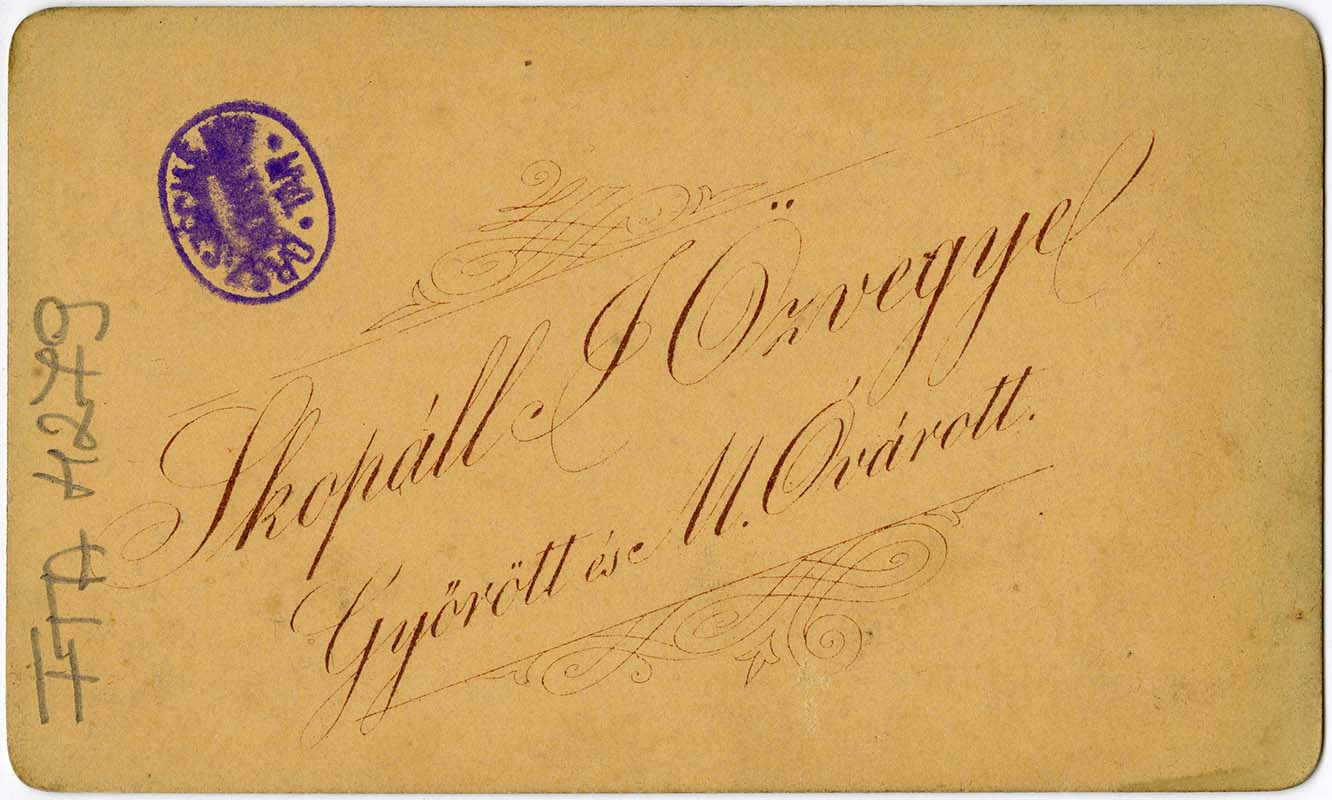 Skopáll J Özvegye
Győrött és M. Óvárott.
ITA 4279